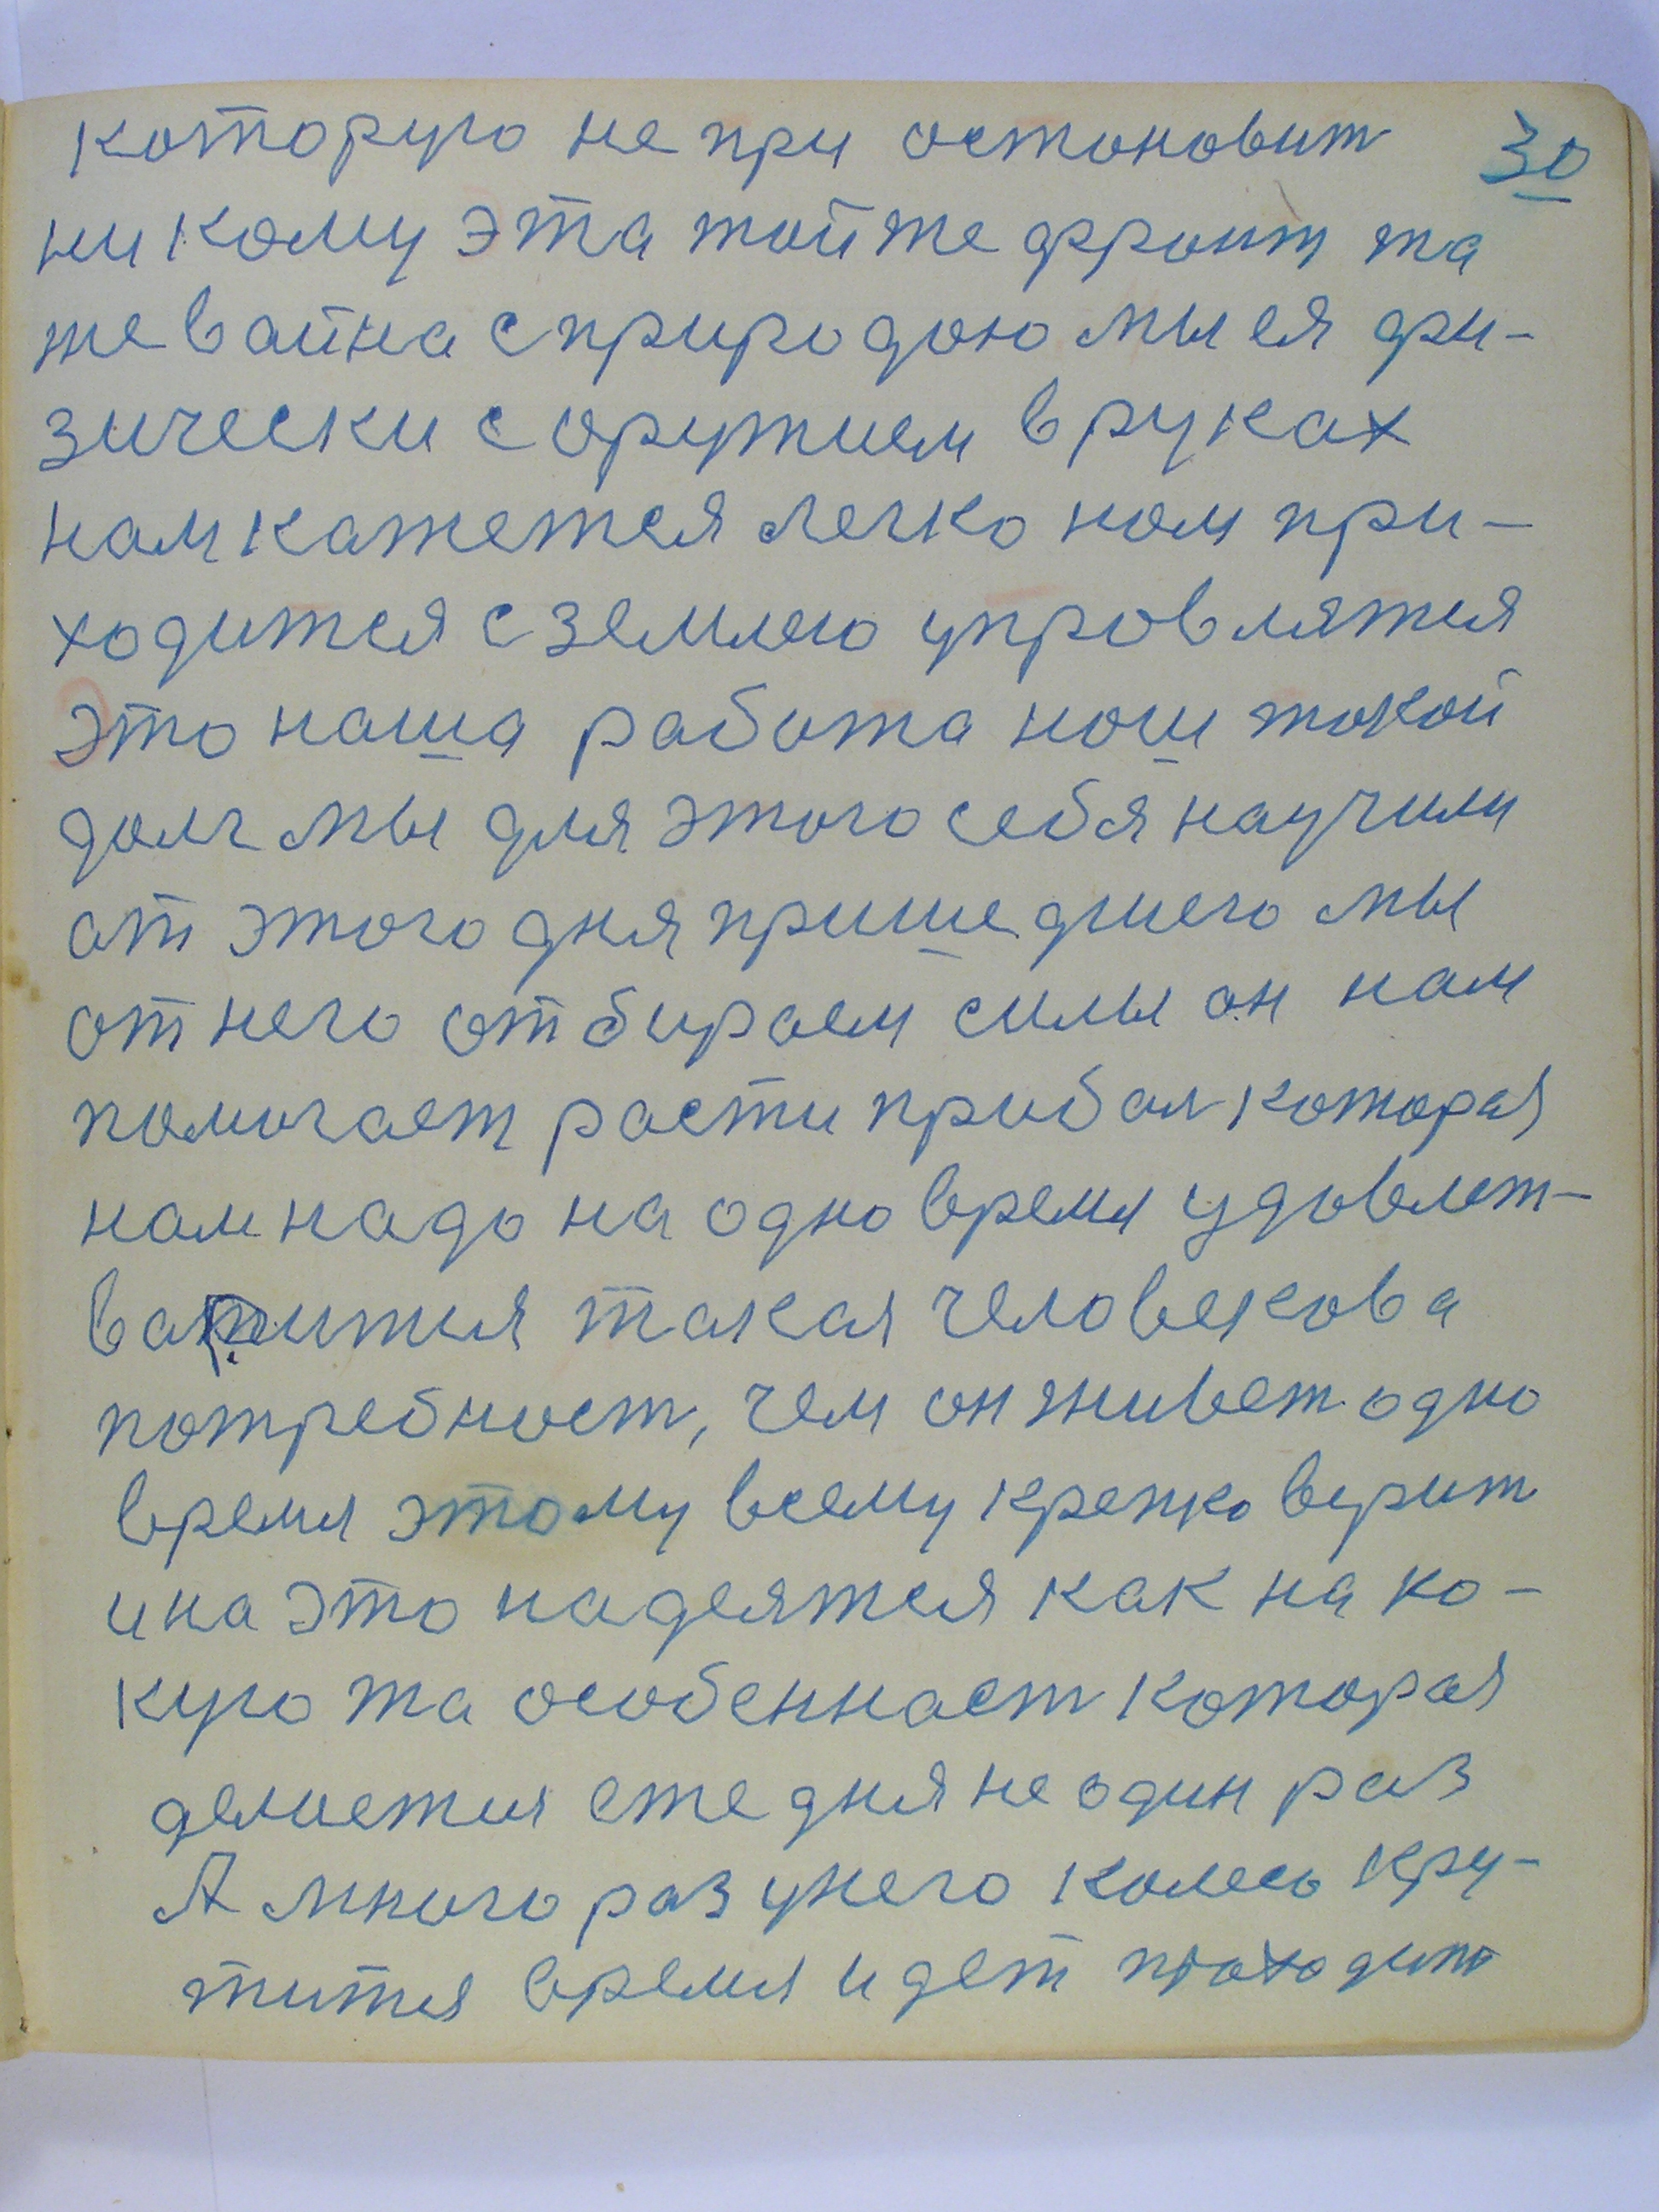 которую не при остоновит 30
ни кому эта тойже фронт та
же вайна с природою мы ея фи-
зически с оружием в руках
нам кажется легко ном при-
ходится с землею упровлятся
это наша работа нош токой
долг мы для этого себя научили
от этого дня пришедшего мы
от него отбираем силы он нам
помогает расти прибол которая
нам надо на одно время удовлет-
варится такая человекова
потребност, чем он живет одно
время этому всему крепко верит
и на это надеятся как на ко-
кую та особеннаст которая
делается еже дня не один раз
А много раз у него колесо кру-
тится время идет проходит